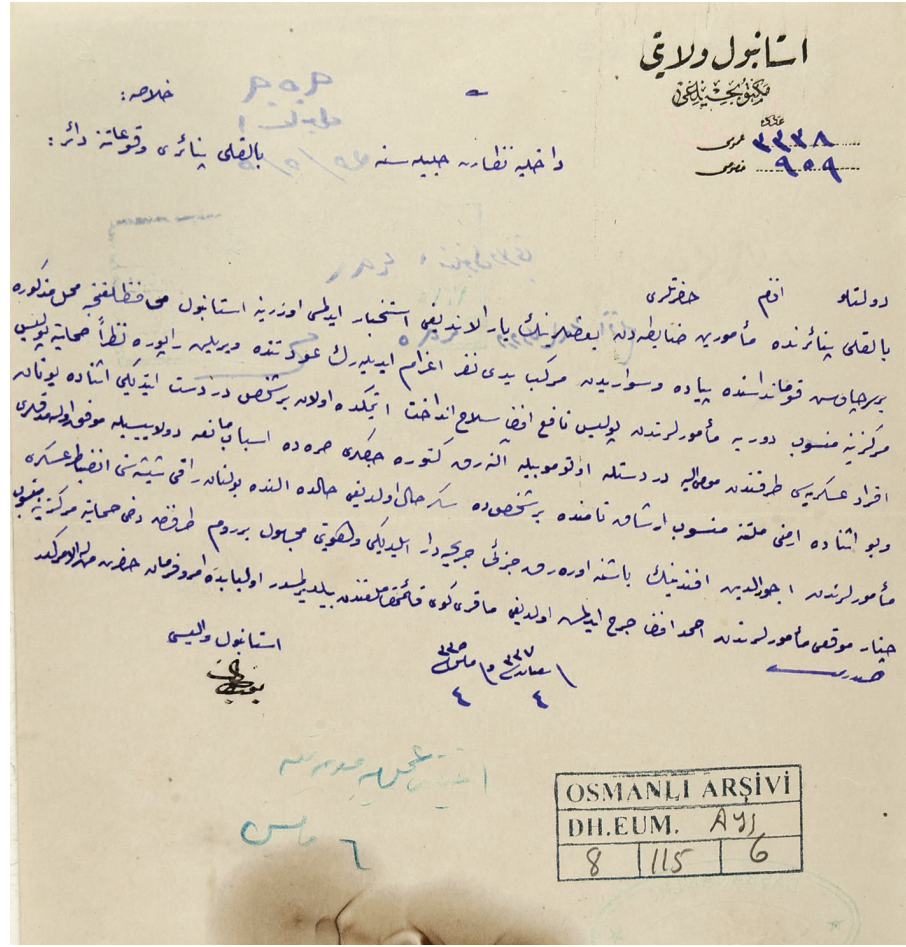 استانبول ولايتی
مكتوبجيلغی
عدد
عمومی ٣٣٣٨
خصوصی ٩٥٩
خلاصه :
بالقلی پنائری وقوعاتنه دائر :
داخليه نظارت جليله سنه
دولتلو افندم حضرتلری
بالقلی پنائرنده مأمورين ضابطه دن بعضيلرينك يارالانديغی استخبار ايدلمسی اوزرينه استانبول محافظلغنجه محل مذكوره
بر چاوش قومانداسنده پياده وسواريدن مركب يدی نفر اعزام ايديله رك عودتنده ويريلن راپوره نظراً صماتيه پوليس
مركزينه منسوب دوريه مأمورلرندن پوليس نافع افندی سلاح انداخت ايتمكده اولان بر شخصی دردست ايتديكی اثناده يونان
افراد عسكريه سی طرفندن دردستله اوتوموبيله آلنه رق كتوره جكلری صره ده اسباب مانعه دولاييسيله موفق اوله مدقلری
وبو اثناده ارمنی ملتنه منسوب ارشاق نامنده بر شخص ده سكر حال اولديغی حالده النده بولنان راقی شيشه سنی انضباط عسكری
مأمورلرندن افندينك باشنه اوره رق جزئی جريحه دار ايلديكی وهويتی مجهول بر روم طرفندن دخی صماتيه مركزينه منسوب
چنار موقعی مأمورلرندن احمد افندی جرح ايدلمش اولديغی ماقری كوی قائمقاملغندن بيلديرلمشدر اولبابده امر وفرمان حضرت من له الامركدر
استانبول واليسی
٣٣٧
٣٣٥
٤ ٤
٦ مارس
OSMANLI ARŞİVİ
DH.EUM. AYŞ
8 115 6